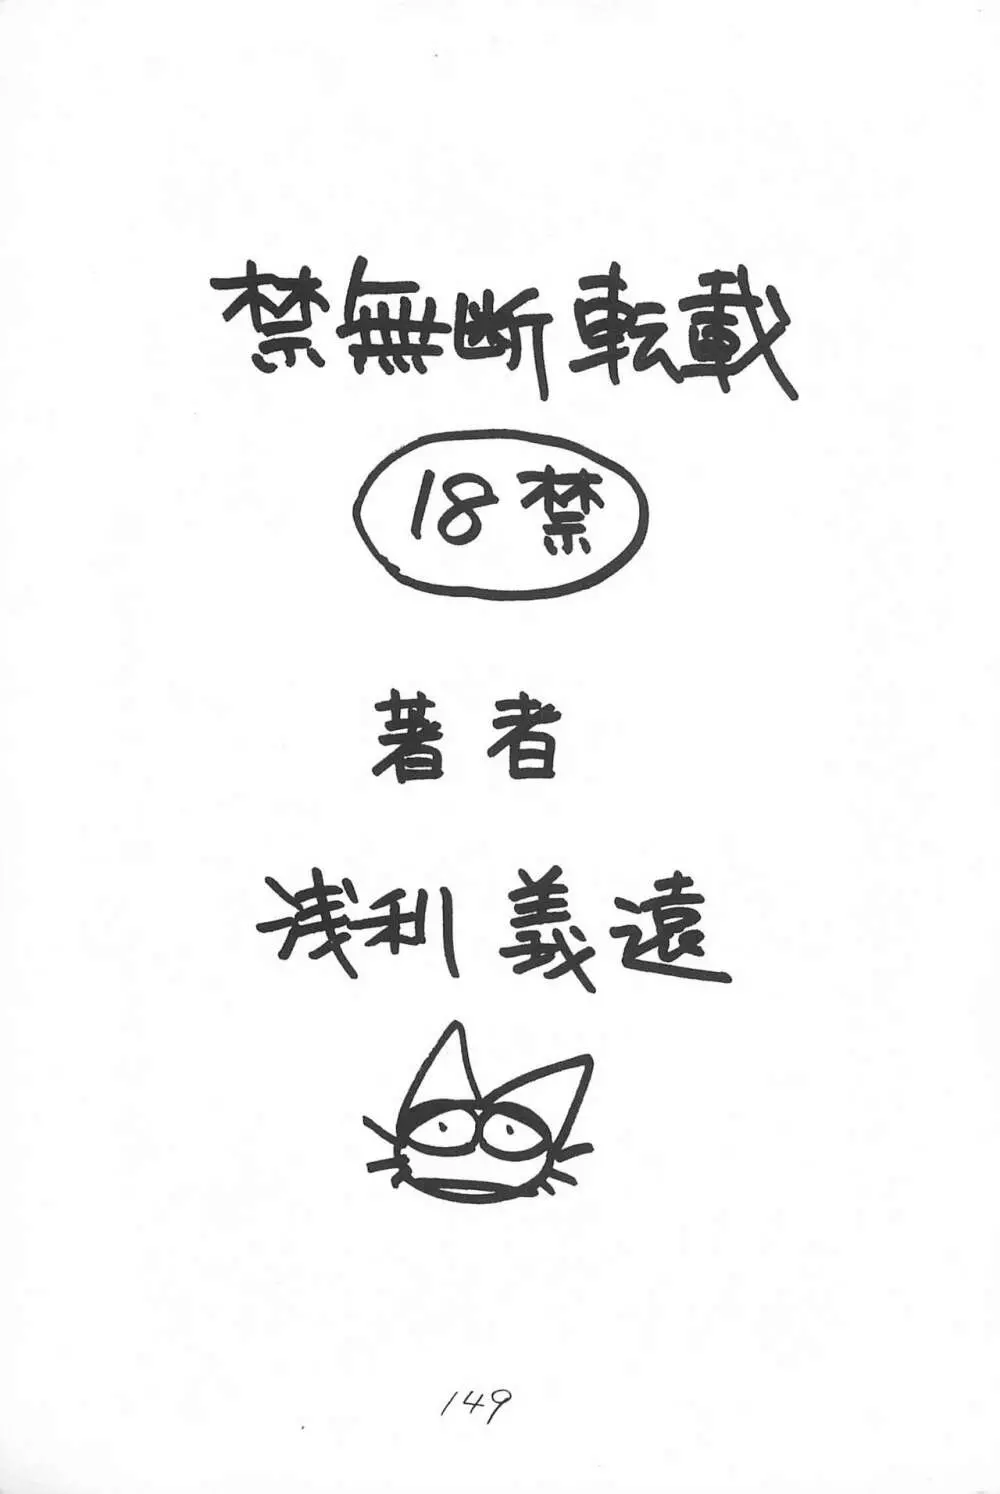 禁無断転載
18禁
著者
浅利義遠
149